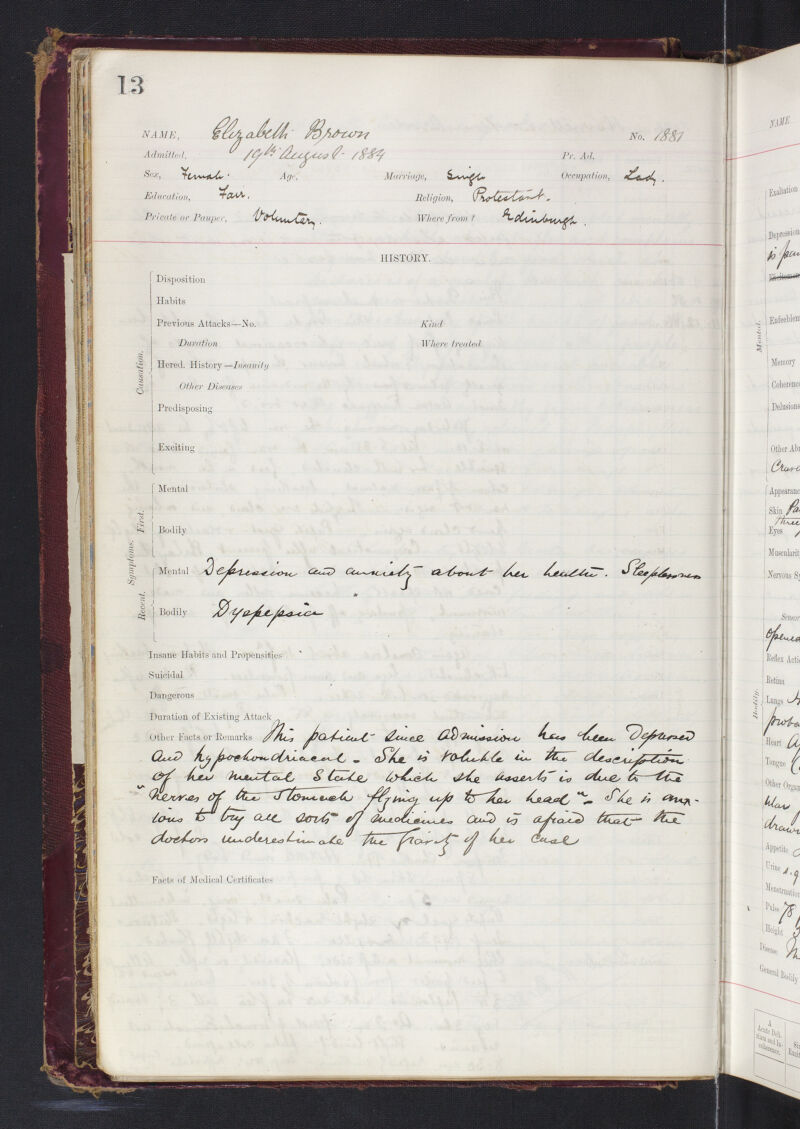 13
NAME, Elizabeth Brown No. 1881
Admitted, 19th August 1884 Pr. Ad.
Sex, Female. Age, Marriage, Single Occupation, Lady.
Education, Fair. Religion, Protestant.
Private or Pauper, Voluntary. Where from? Edinburgh.
HISTORY.
Causation.
Disposition
Habits
Previous Attacks—No. Kind
Duration Where treated
Hered. History—Insanity
Other Diseases
Predisposing
Exciting
Symptoms. First.
Mental
Bodily
Recent.
Mental Depression and anxiety about her health. Sleeplessness
Bodily Dyspepsia
Insane Habits and Propensities
Suicidal
Dangerous
Duration of Existing Attack
Other Facts or Remarks This patient since admission has been depressed
and hypochondriacal. She is voluble in the description
of her mental state which she asserts is due to the
"nerves of the stomach flying up to her head". She is anx-
ious to try all sorts of medicines and is afraid that the
doctors underestimate the gravity of her case
Facts of Medical Certificates
NAME
Mental.
Exaltation
Depression
Enfeeblem
Memory
Coherence
Delusions
Other Ab
Appearanc
Skin
Eyes
Muscularit
Nervous Sy
Bodily.
Sensor
Reflex Acti
Retina
Lungs
Heart
Tongue
Other Organ
Appetite
Urine
Menstruation
Pulse 78
Height
Disease
General Bodily
A
Acute Deli-
rium and In-
coherence.